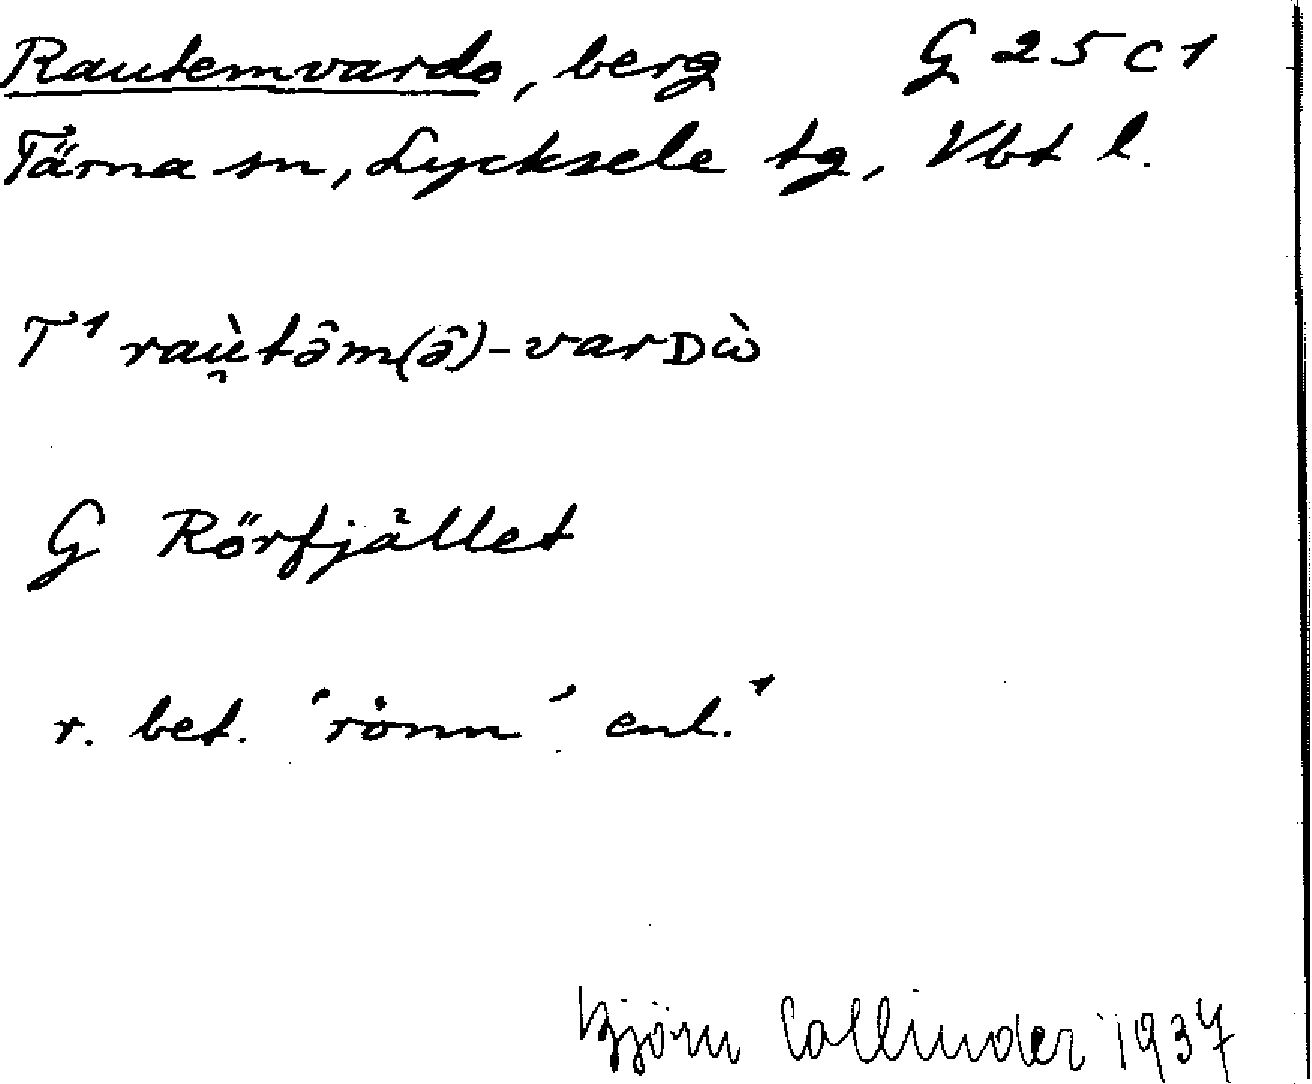 Rautemvardo, berg G 25 C 1
Tärna sn, Lycksele tg, Vbt l.
T¹ raụ̀tə̂m(ə̂)-varDὼ
G Rörfjället
r. bet. 'rönn' enl. ¹
Björn Collinder 1937